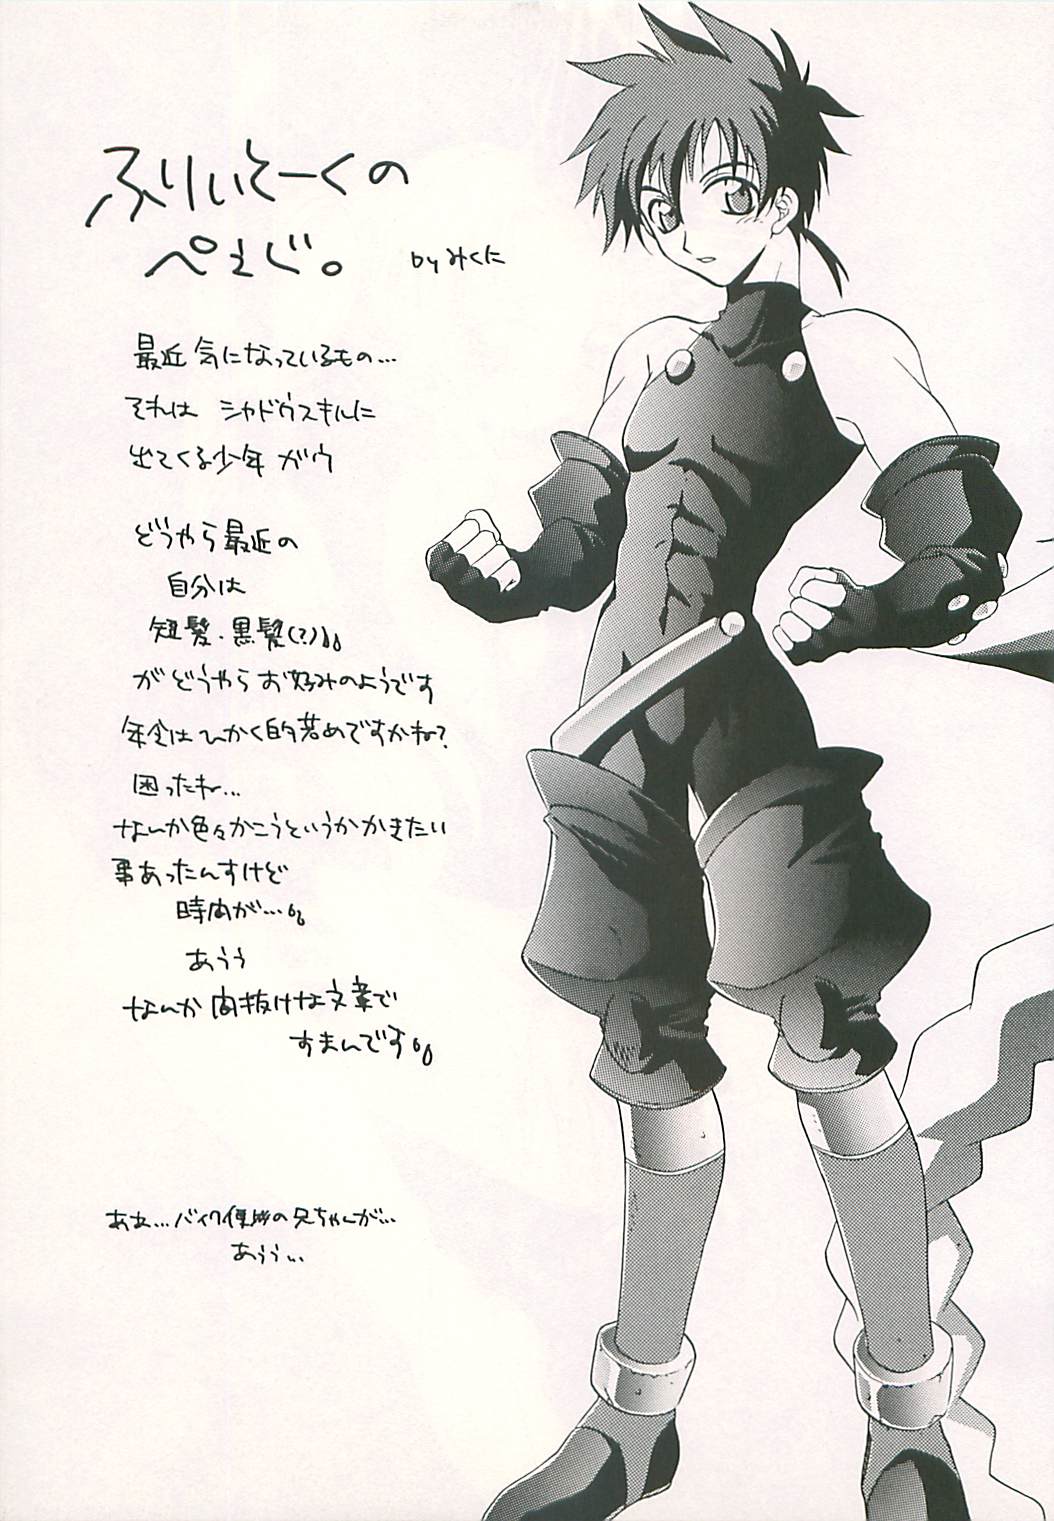 ふりぃとーくの
ぺぇじ。
by みくに
最近気になっているもの…
それは シャドウスキルに
出てくる少年ガウ
どうやら最近の
自分は
短髪・黒髪(?)
がどうやらお好みのようです
年令はひかく的若めですかね?
困ったね…
なんか色々かこうというかかきたい
事あったんすけど
時間が…。
あうぅ
なんか間抜けな文章で
すまんです。
ああ…バイク便の兄ちゃんが…
あうぅ…